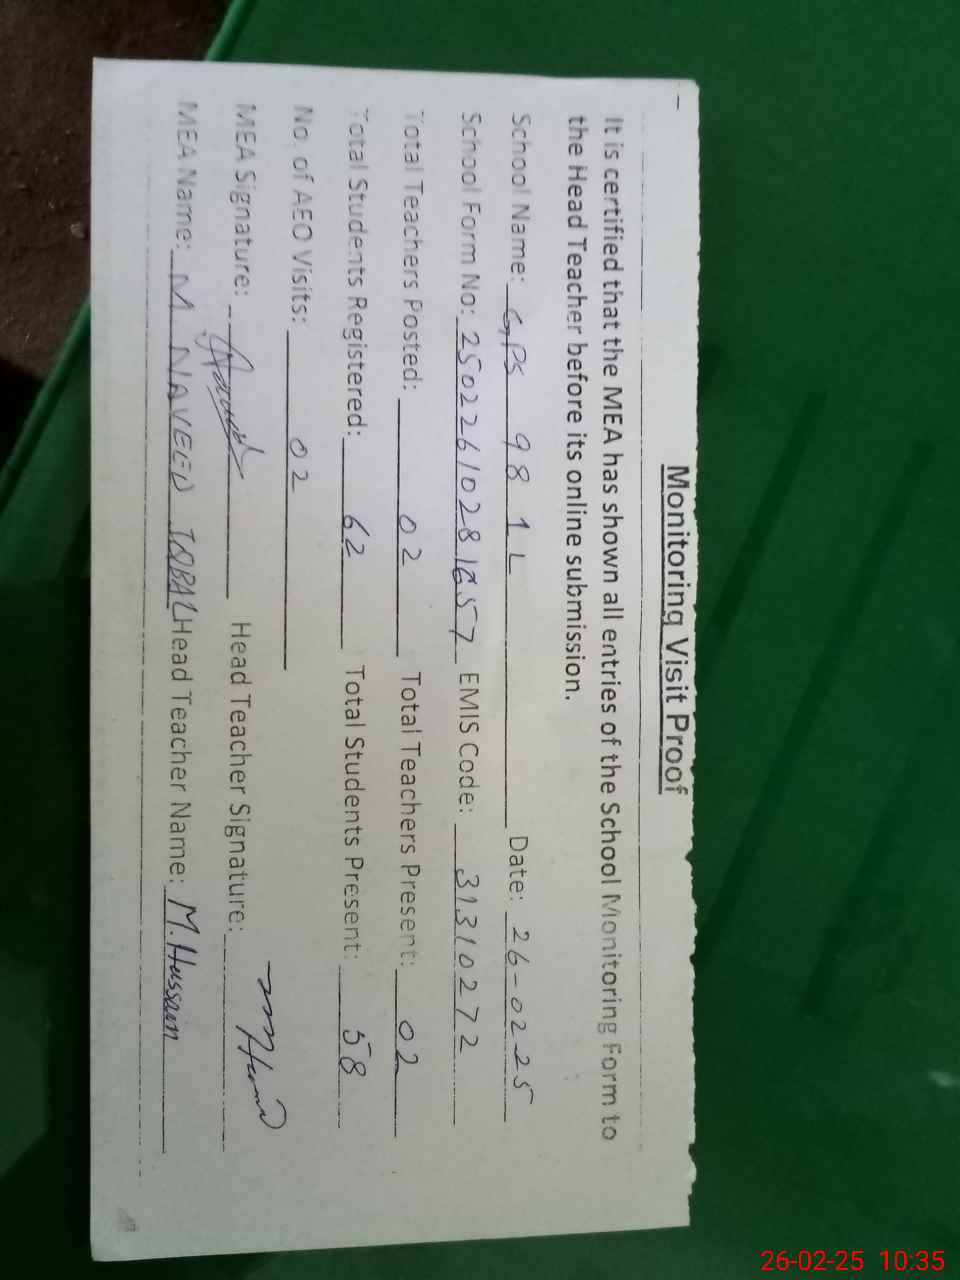 Monitoring Visit Proof
It is certified that the MEA has shown all entries of the School Monitoring Form to
the Head Teacher before its online submission.
School Name: GPS 98 1 L Date: 26-02-25
School Form No: 2502261028 1657 EMIS Code: 31310272
Total Teachers Posted: 02 Total Teachers Present: 02
Total Students Registered: 62 Total Students Present: 58
No. of AEO Visits: 02
MEA Signature: Head Teacher Signature:
MEA Name: M NAVEED IQBAL Head Teacher Name: M. Hussain
26-02-25 10:35